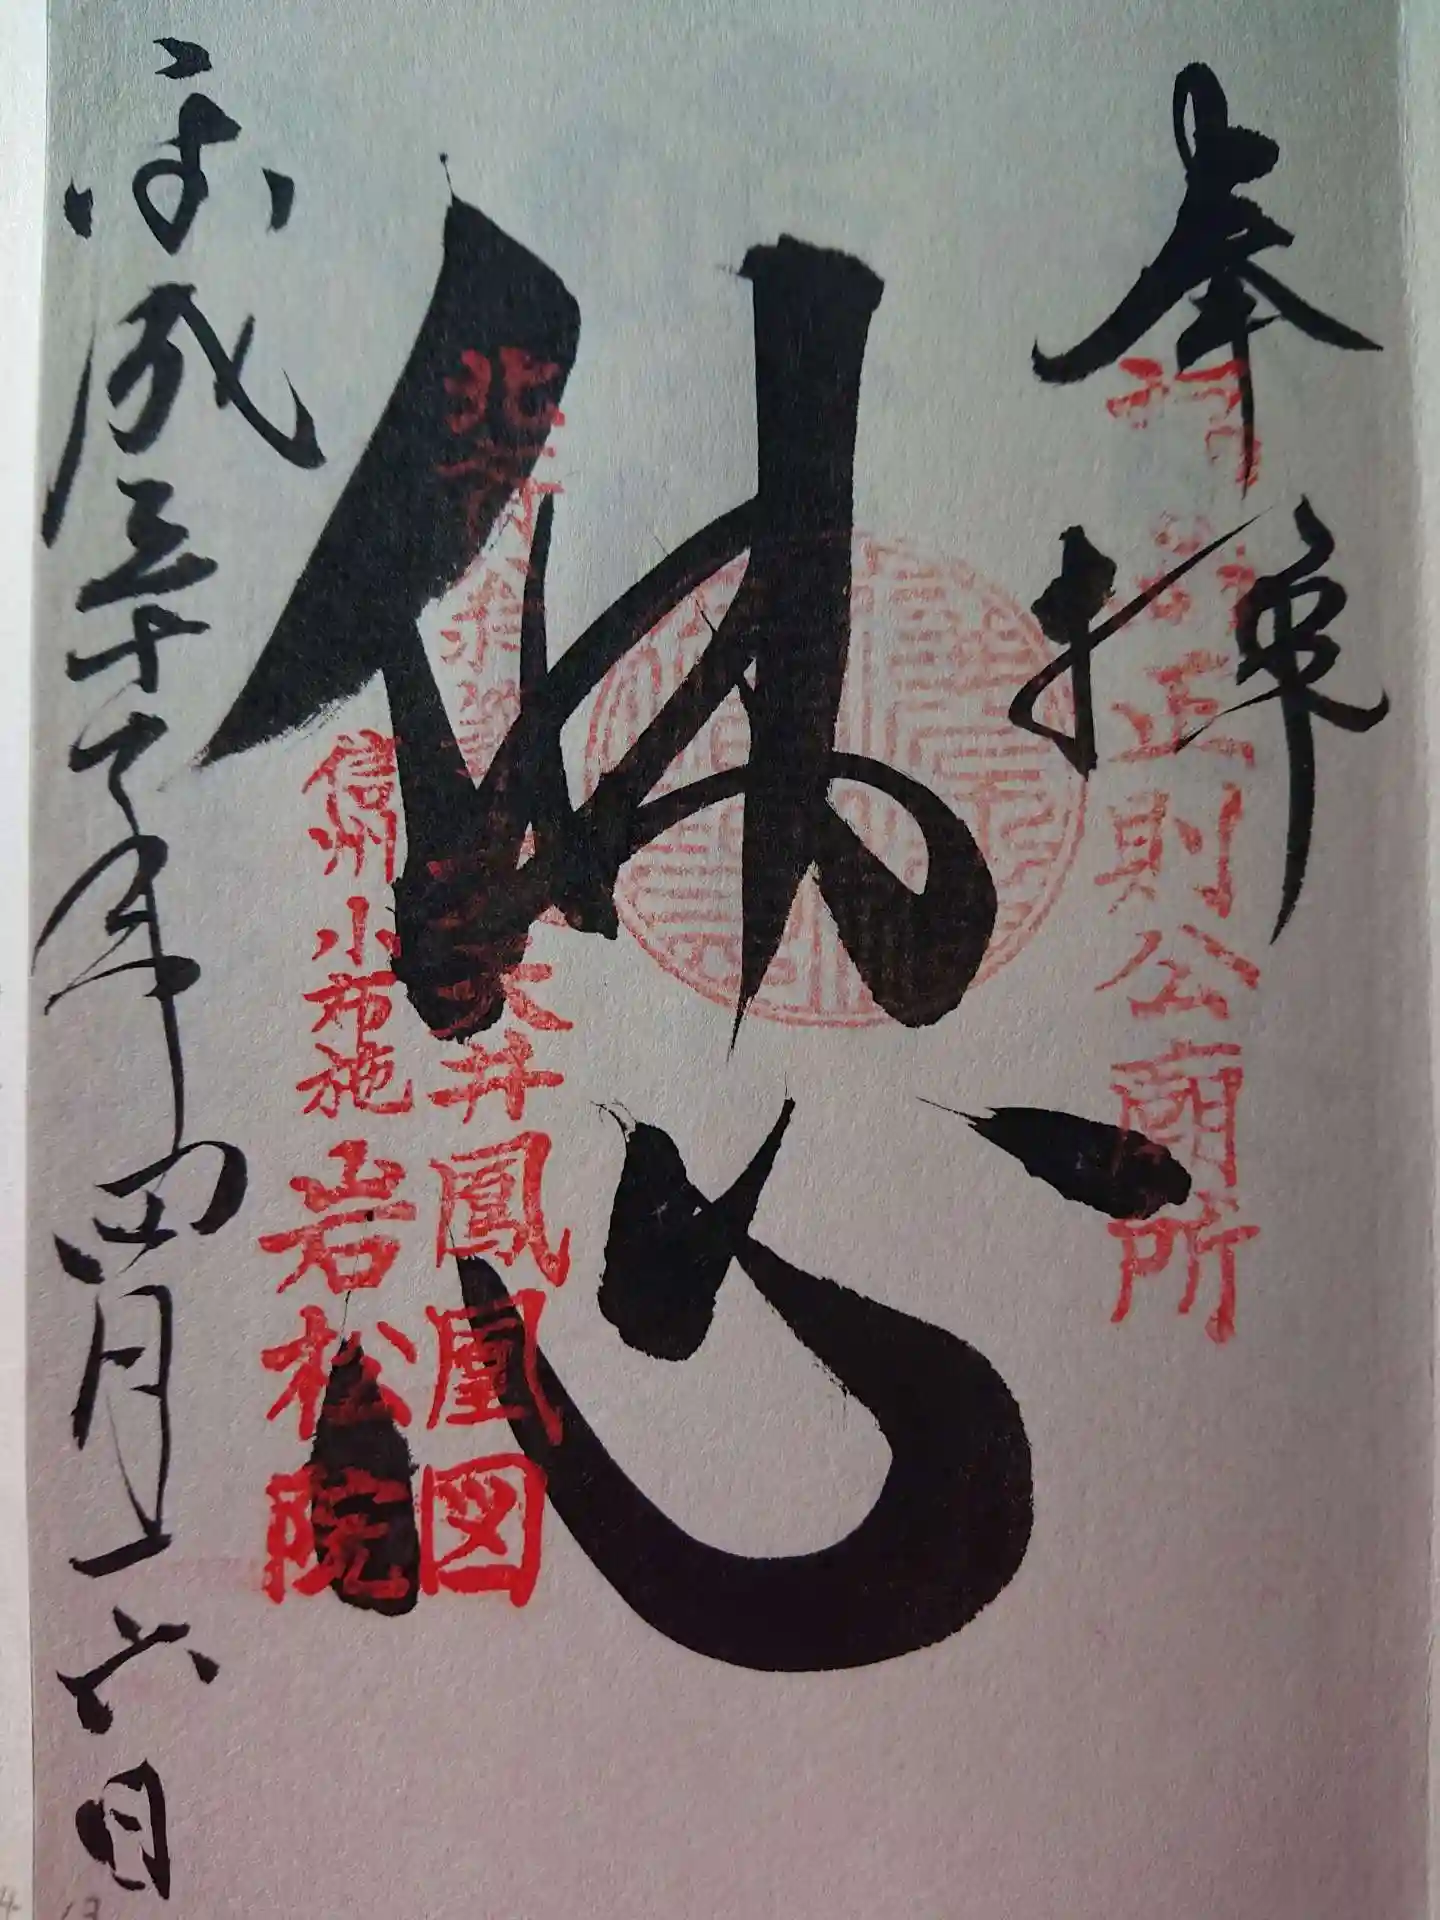 奉拝
福島正則公廟所
佛心
天井鳳凰図
信州小布施岩松院
平成三十 年四月 六日